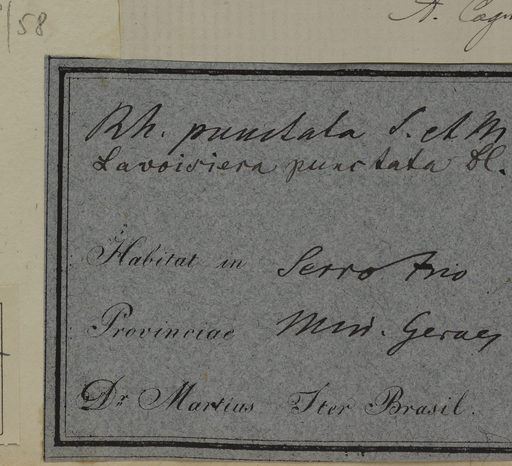 /58
A.
Rh. punctata S. et M
Lavoisiera punctata Dl.
Habitat in Serro frio
Provinciae Min. Geraes
Dr Martius Iter Brasil.